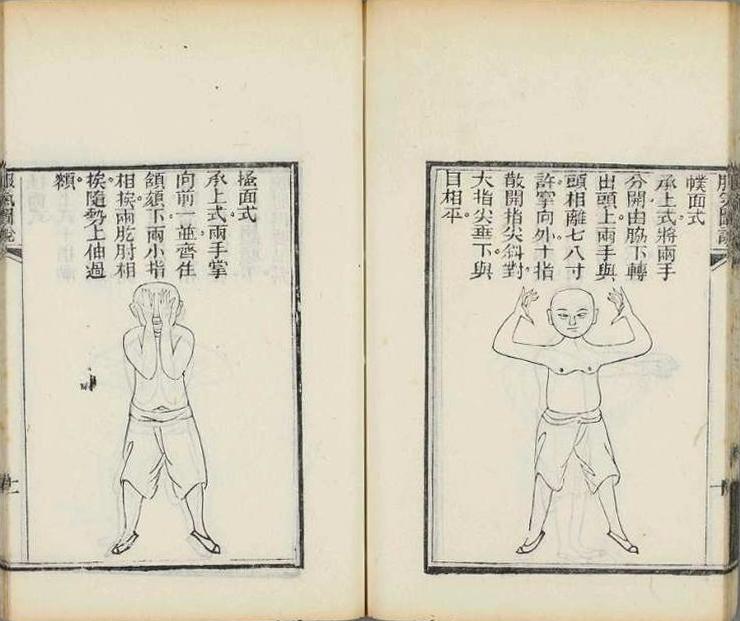 服氣圖說
幞面式
承上式將兩手
分開由脇下轉
出頭上兩手與
頭相離七八寸
許掌向外十指
散開指尖斜對
大指尖垂下與
目相平
十
搔面式
承上式兩手掌
向前一並齊住
頷頦下兩小指
相挨兩肐肘相
挨隨勢上伸過
額
服氣圖說
十一